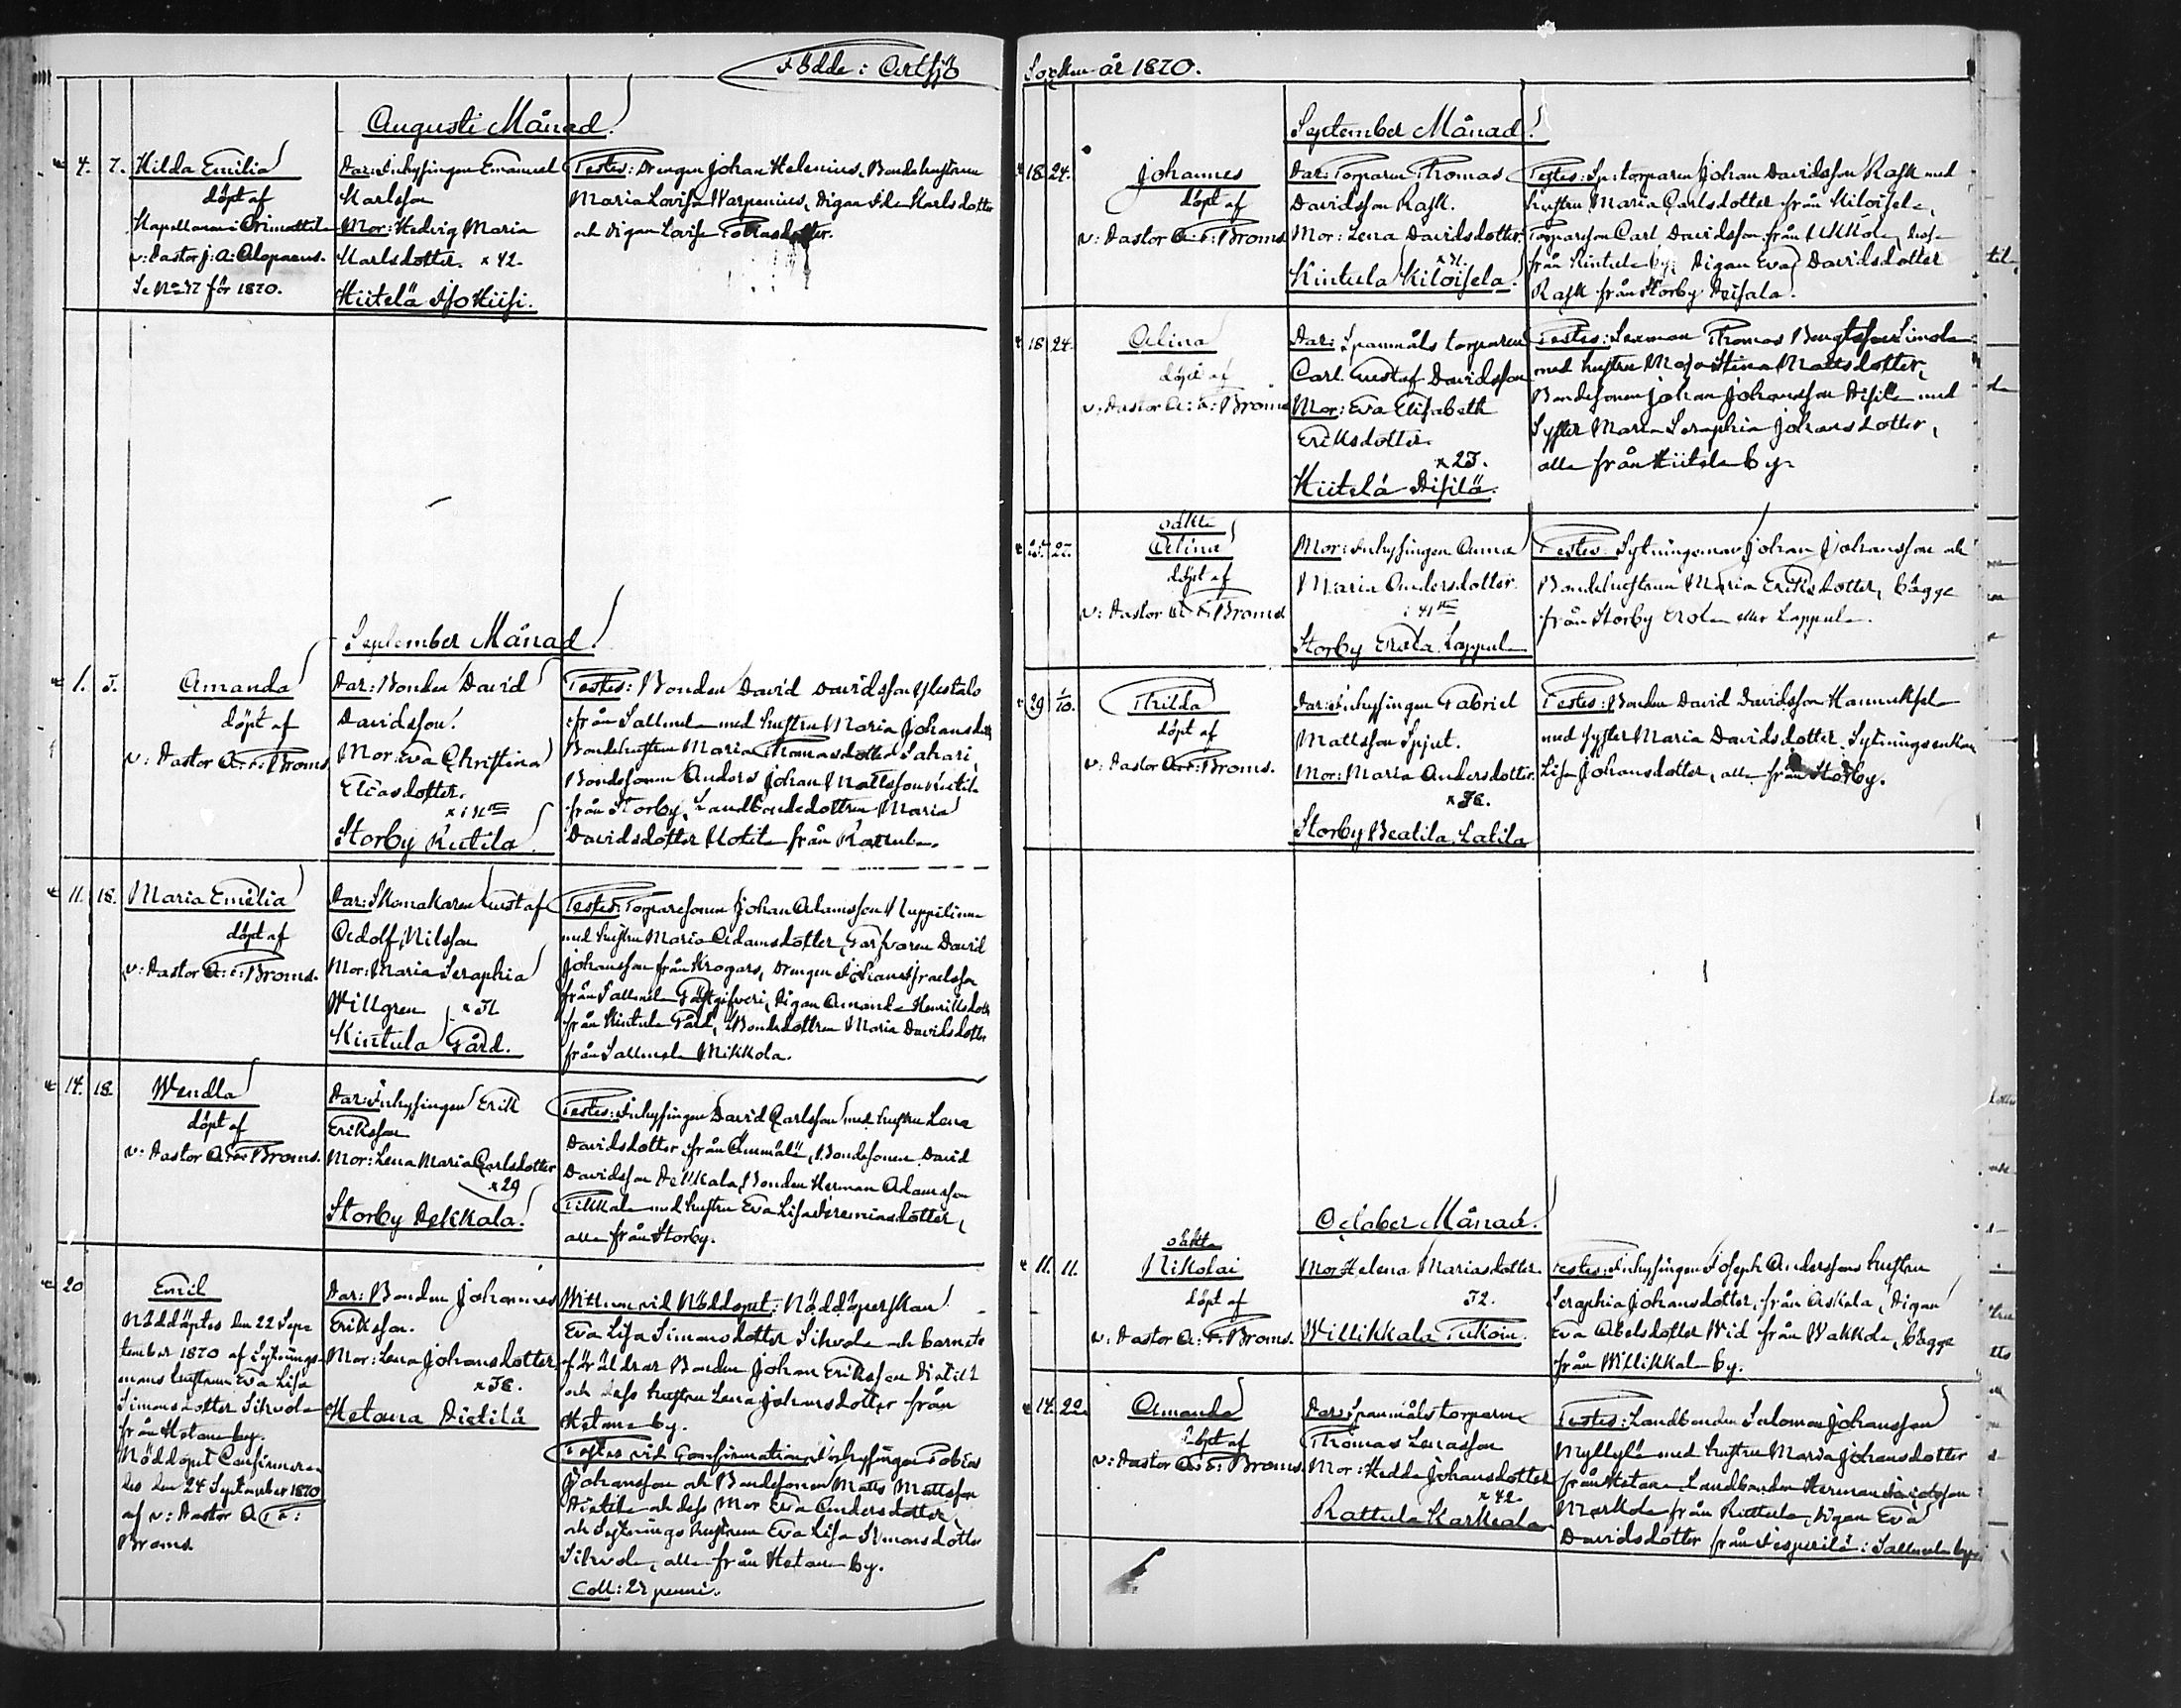 Födde i Artsjö
Socken år 1870.
Augusti Månad
4. 7. Hilda Emilia
döpt af
Kapellanen i Orimattila
v: Pastor J: A: Alopaeus.
för 1870.
Par: Inhysingen Emanuel
Karlsson
Mor: Hedvig Maria
Karlsdotter. x 42.
Hiitelä Iso Hiisi.
Testes: Drengen Johan Helenius, Bondehustrun
Maria Lovisa Warpenius, Pigan Ida Karlsdotter
och Pigan Lovisa Tobiasdotter.
September Månad
1. 5. Amanda
döpt af
v: Pastor A: F: Broms
Par: Bonden David
Davidsson.
Mor: Eva Christina
Eliasdotter.
Storby Kutila
Testes: Bonden David Davidsson
från Sallmela med hustru Maria Johansdotter
Bondehustrun Maria Thomasdotter Sahari,
Bondesonen Anders Johan Mattsson
från Storby, Landbondedottren Maria
Davidsdotter från Rattula.
11. 18. Maria Emilia
döpt af
v: Pastor A: F: Broms.
Par: Skomakaren Gustaf
Adolf Nilsson
Mor: Maria Seraphia
Willgren
Kintula Gård.
Testes: Torparesonen Johan Adamsson
med hustru Maria Adamsdotter, Garfvaren David
Johansson från Krogars, Drengen Israelsson
från Sallmela Gästgifveri, Pigan Amanda Henriksdotter
från Kintula Gård, Bondedottren Maria Davidsdotter
från Sallmela Mikkola.
14. 18. Wendla
döpt af
v: Pastor A: F: Broms.
Par: Inhysingen Erik
Eriksson
Mor: Lena Maria Carlsdotter
x 29
Storby Pekkala.
Testes: Inhysingen David Carlsson med hustru Lena
Davidsdotter från Ämmälä, Bondesonen David
Davidsson Pekkala, Bonden Herman Adamsson
Tikkala med hustru Eva Lisa Jeremiasdotter,
alla från Storby.
20 Emil
Nöddöptes den 22 Sep-
tember 1870 af Sytnings-
mans hustrun Eva Lisa
Simonsdotter Sihvola
från Hetana by.
Nöddopet Confirmera-
des den 24 September 1870
af v: Pastor A: F:
Broms
Par: Bonden Johannes
Eriksson.
Mor: Lena Johansdotter
x 36.
Hetana Pietilä
Wittnen vid Nöddopet: Nöddöperskan
Eva Lisa Simonsdotter Sihvola och barnets
föräldrar Bonden Johan Eriksson Pietilä
och dess hustru Lena Johansdotter från
Hetana by.
Testes vid Confirmation: Inhysingen Tobias
Johansson och Bondesonen Matts Mattsson
Pietilä och dess Mor Eva Andersdotter,
och Sytnings hustrun Eva Lisa Simonsdotter
Sihvola, alla från Hetana by.
Coll: 27 penni.
September Månad.
18 24. Johannes
döpt af
v: Pastor A: F: Broms
Par: Torparen Thomas
Davidsson Rask.
Mor: Lena Davidsdotter.
Kintula Kiloisela.
Testes: Sp:torparen Johan Davidsson Rask med
hustru Maria Carlsdotter från Kiloisela,
Torparson Carl Davidsson från
från Kintula by, Pigan Eva Davidsdotter
Rask från Storby
18 24. Alina
döpt af
v: Pastor A: F: Broms
Par: Spannmåls torparen
Carl Gustaf Davidsson
Mor: Eva Elisabeth
Eriksdotter.
x 25.
Hiitelä
Testes: Sexman Thomas Bengtsson Simola
med hustru Maja Stina Mattsdotter,
Bondesonen Johan Johansson med
Syster Maria Seraphia Johansdotter,
alla från Hiitela by.
25. 27. oäkta
Alina
döpt af
v: Pastor A: F: Broms
Mor: Inhysingen Anna
Maria Andersdotter.
i 41te
Storby Erola Lappula
Testes: Sytningsman Johan Johansson och
Bondehustrun Maria Eriksdotter, bägge
från Storby Erola eller Lappula.
29 1/10. Thilda
döpt af
v: Pastor A: F: Broms.
Par: Inhysingen Gabriel
Mattsson Spjut.
Mor: Maria Andersdotter.
x 36.
Storby Beatila Latila
Testes: Bonden David Davidsson Hannuksela
med syster Maria Davidsdotter. Sytningsenkan
Lisa Johansdotter, alla från Storby.
October Månad.
11. 11. oäkta
Nikolai
döpt af
v: Pastor A: F: Broms.
Mor Helena Mariasdotter.
32.
Willikkala Tukoin.
Testes: Inhysingen Joseph Anderssons hustru
Seraphia Johansdotter, från Askala, Pigan
Eva Abelsdotter Wid från Wakkola, bägge
från Willikkala by.
14. 22. Amanda
döpt af
v: Pastor A: F: Broms
Par: Spanmåls torparen
Thomas Lenasson
Mor: Hedda Johansdotter
x 42.
Rattula Karkeala
Testes: Landbonden Salomon Johansson
Myllylä med hustru Maria Johansdotter
från Hetana Landbonden Herman
Markola från Rattula, Pigan Eva
Davidsdotter från i Sallmela by